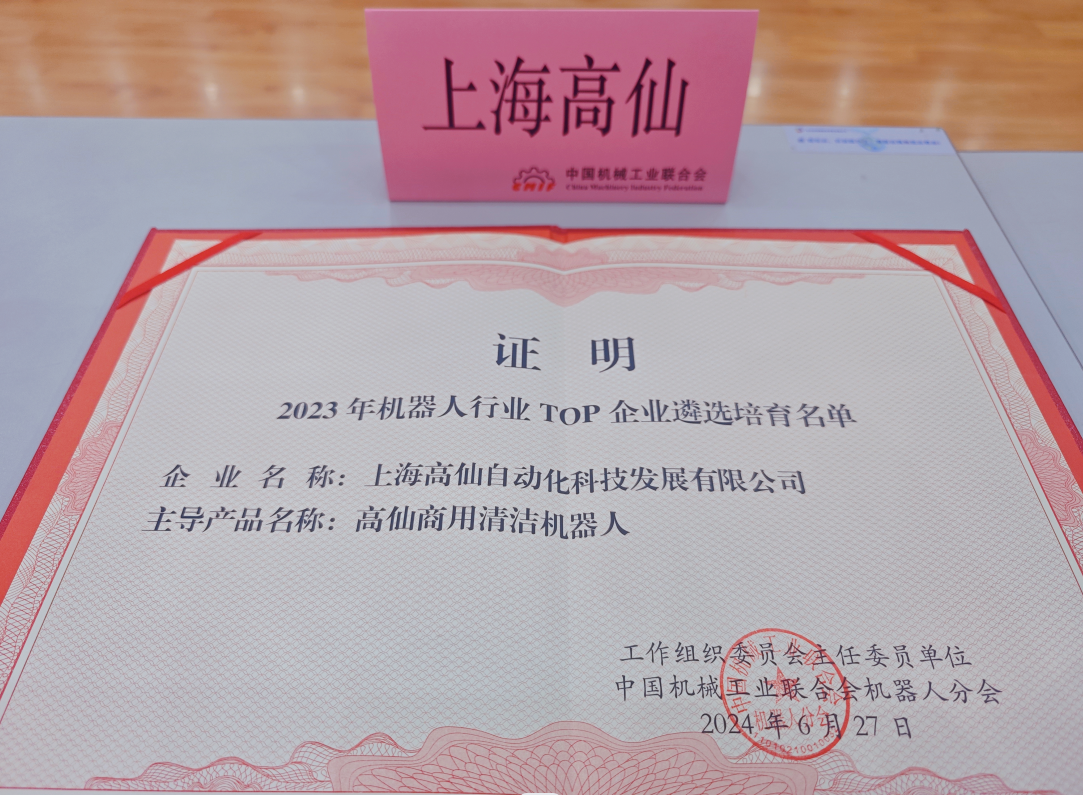 上海高仙
中国机械工业联合会
China Machinery Industry Federation
证 明
2023 年机器人行业 TOP 企业遴选培育名单
企 业 名 称：上海高仙自动化科技发展有限公司
主导产品名称：高仙商用清洁机器人
工作组织委员会主任委员单位
中国机械工业联合会机器人分会
2024 年 6 月 27 日
中国机械工业联合会
机器人分会